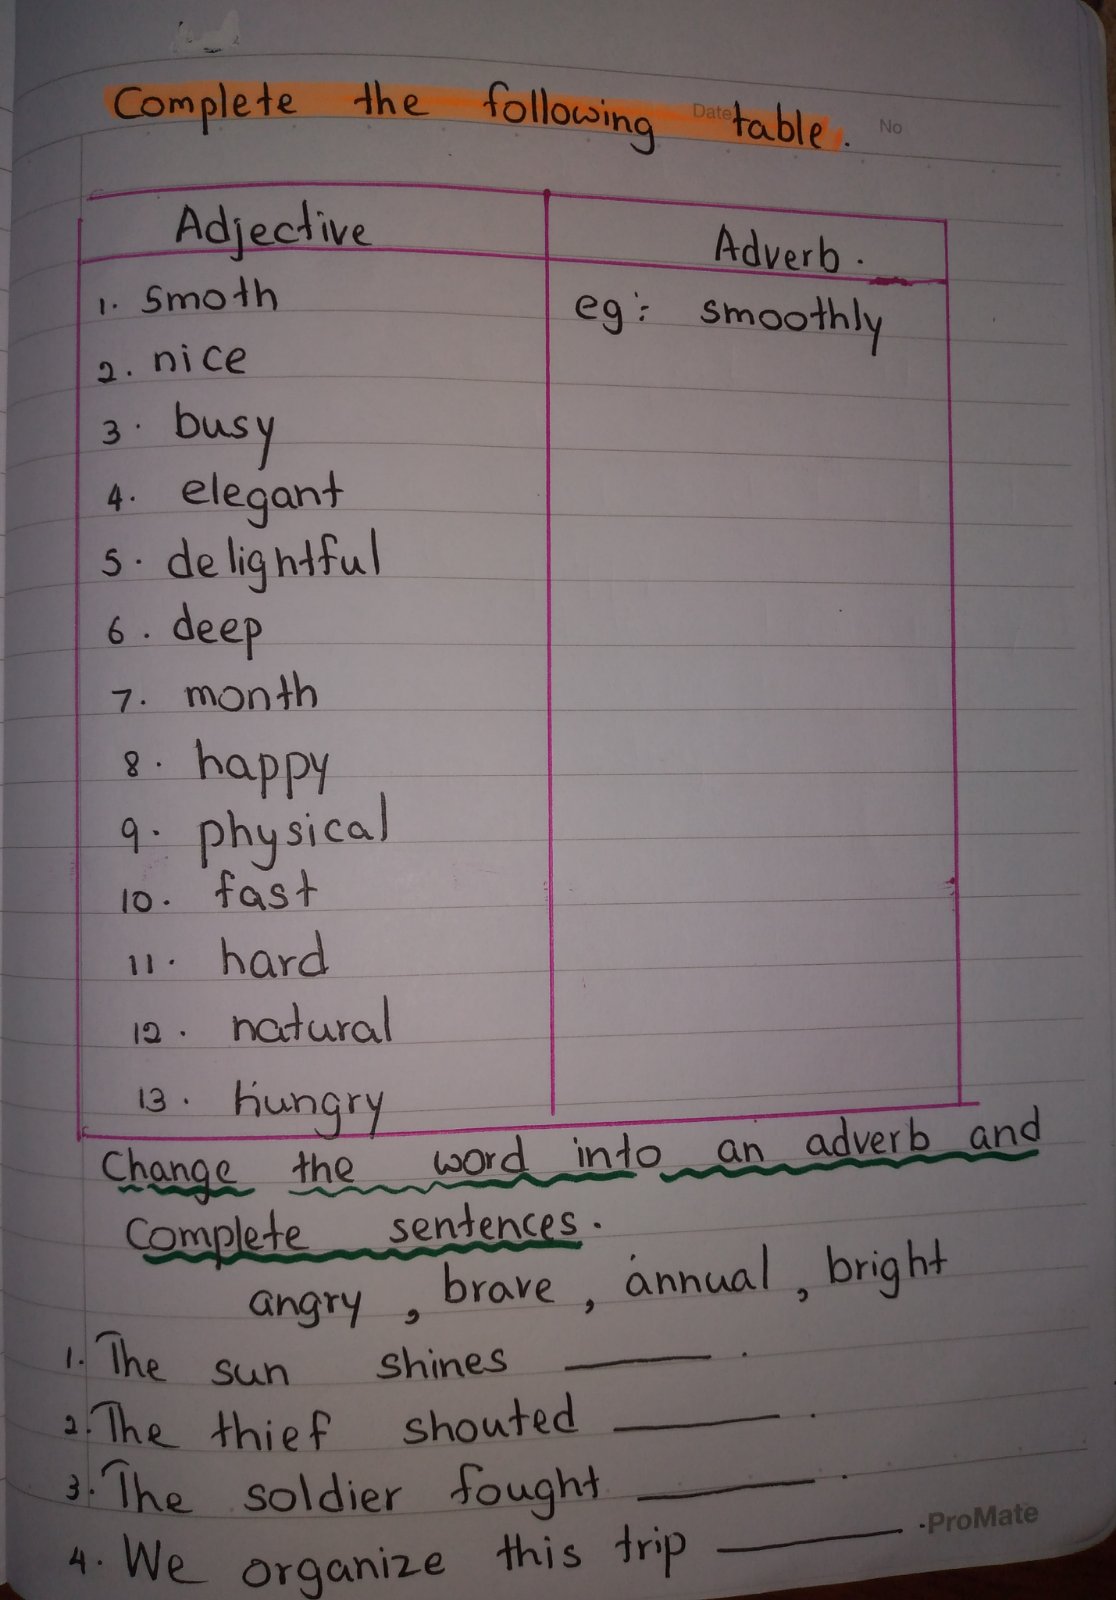 Complete the following table.
Date
No
Adjective Adverb.
1. smoth eg:- smoothly
2. nice
3. busy
4. elegant
5. delightful
6. deep
7. month
8. happy
9. physical
10. fast
11. hard
12. natural
13. hungry
Change the word into an adverb and
Complete sentences.
angry, brave, annual, bright
1. The sun shines ______.
2. The thief shouted ______.
3. The soldier fought ______.
4. We organize this trip ______.
ProMate